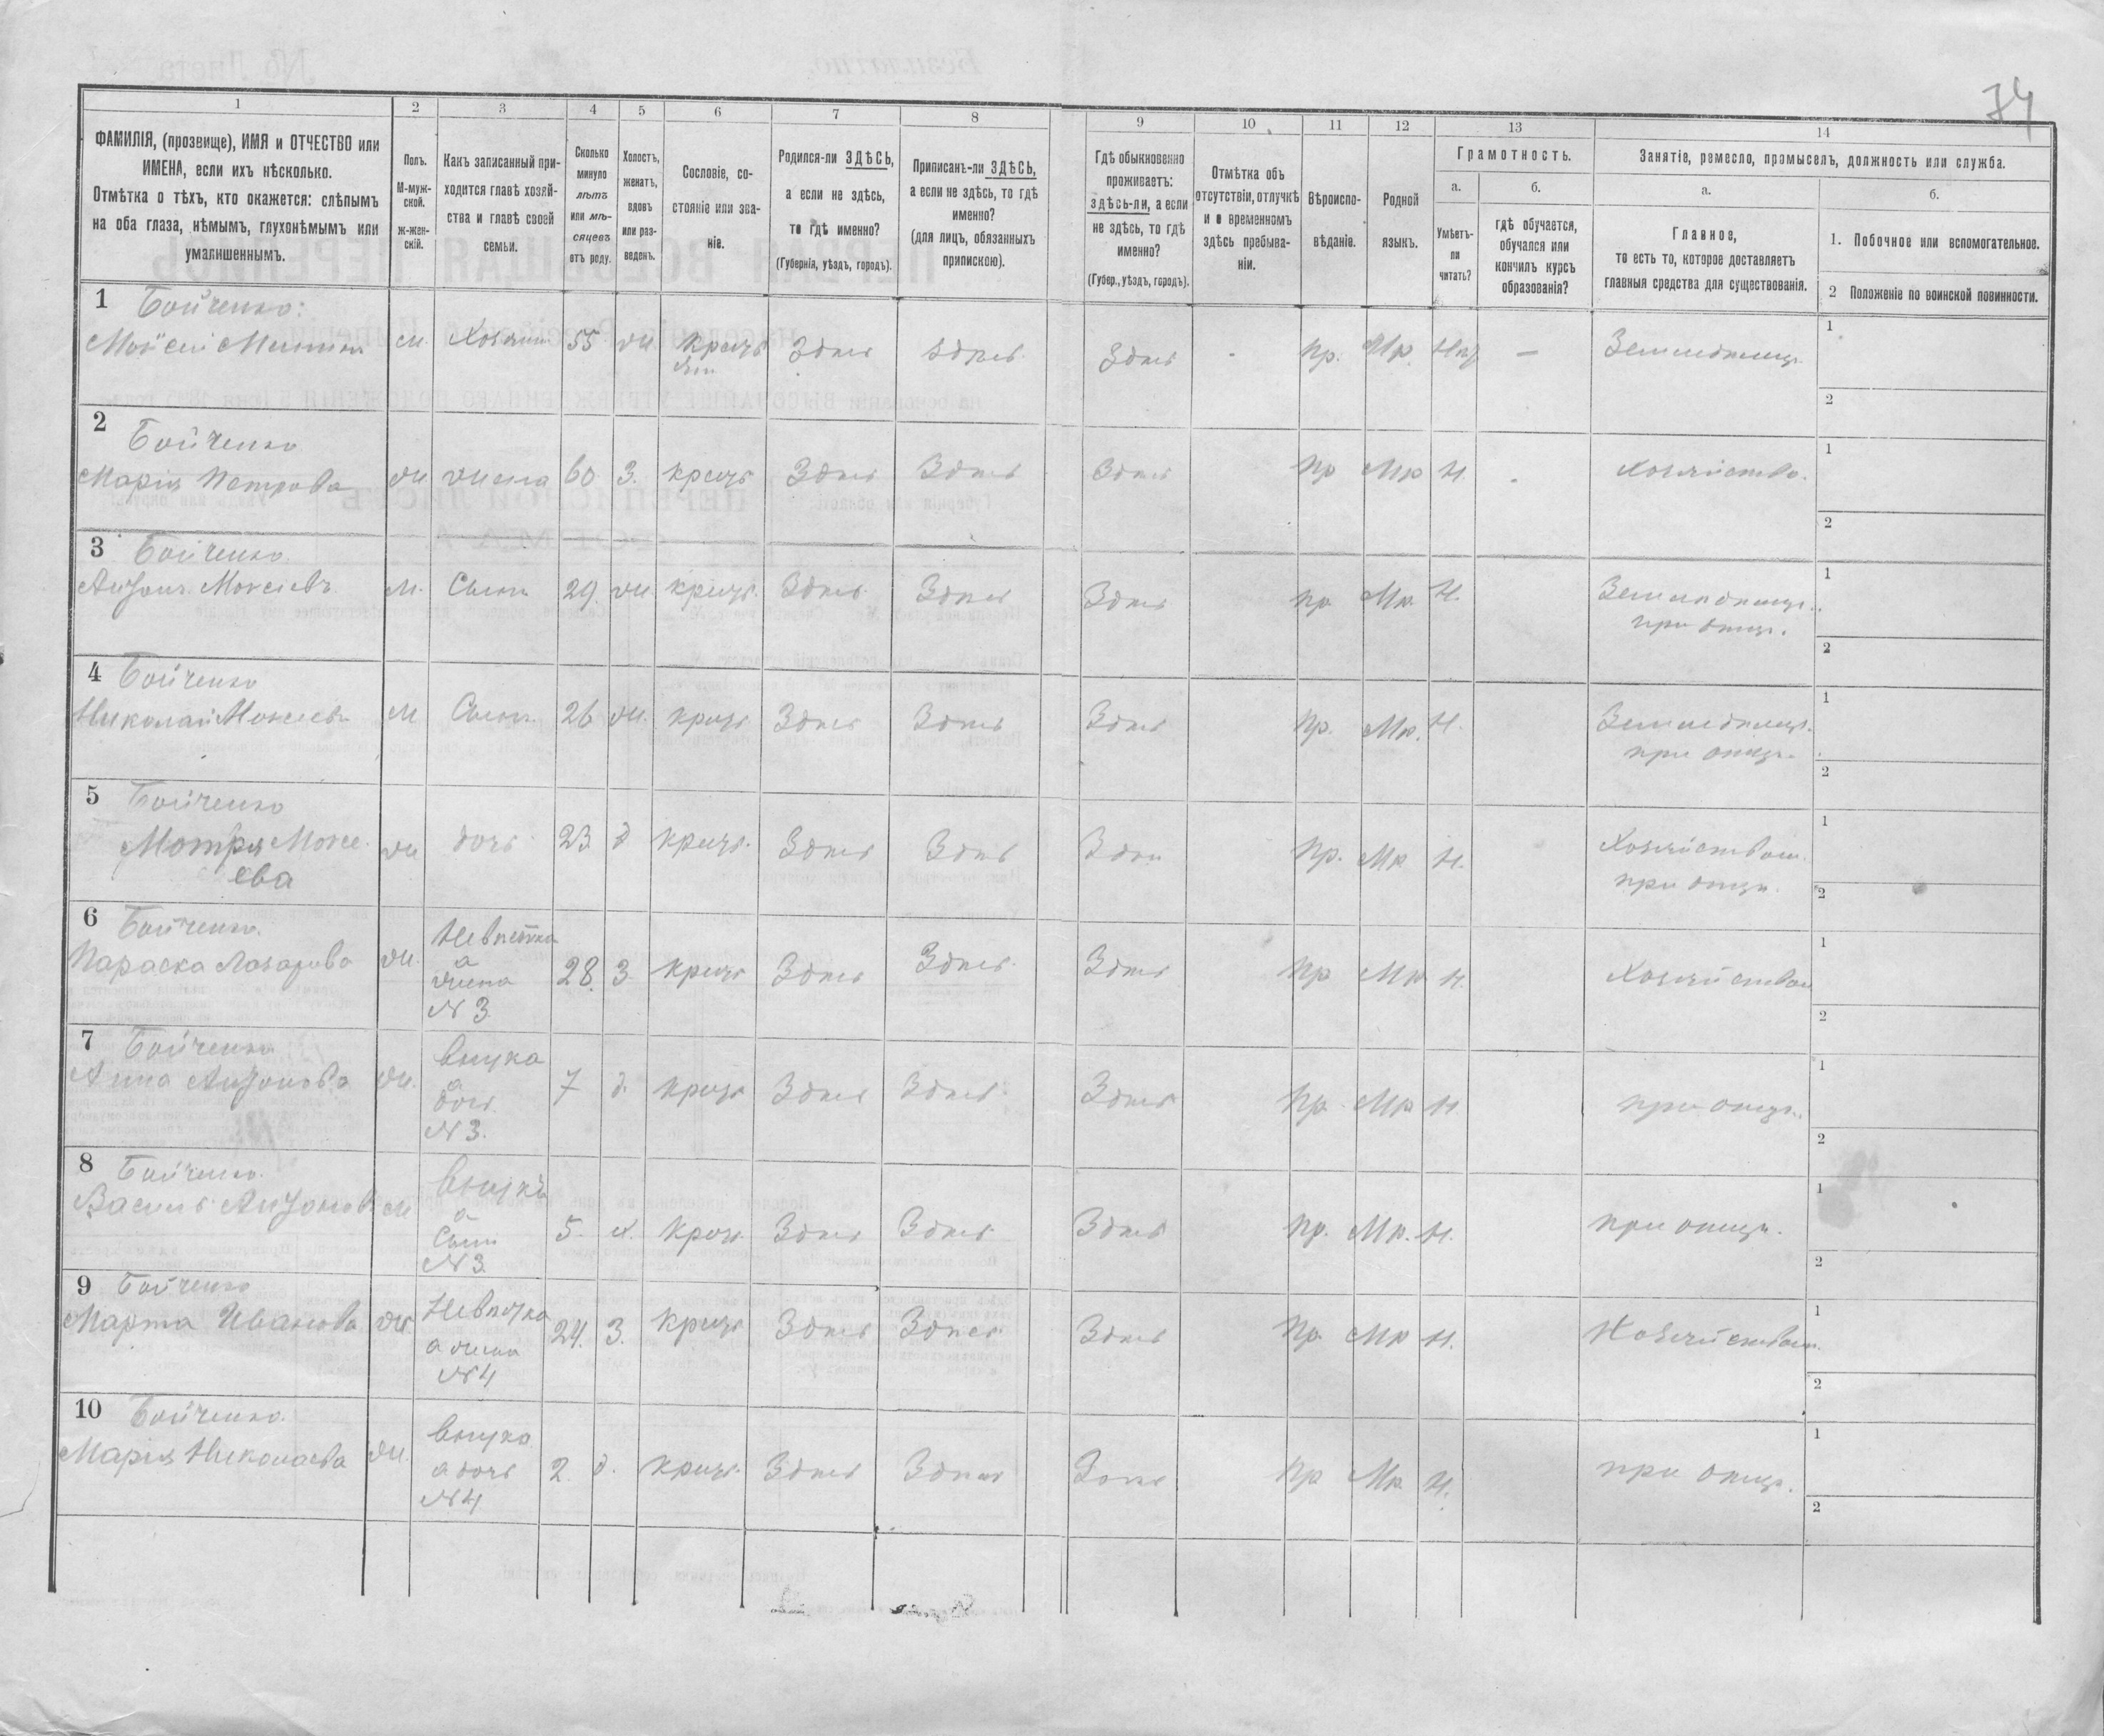 74
1 2 3 4 5 6 7 8 9 10 11 12 13 14
ФАМИЛІЯ, (прозвище), ИМЯ и ОТЧЕСТВО или
ИМЕНА, если ихъ нѣсколько.
Отмѣтка о тѣхъ, кто окажется: слѣпымъ
на оба глаза, нѣмымъ, глухонѣмымъ или
умалишеннымъ.
Полъ.
М-муж-
ской.
Ж-жен-
скій.
Какъ записанный при-
ходится главѣ хозяй-
ства и главѣ своей
семьи.
Сколько
минуло
лѣтъ
или мѣ-
сяцевъ
отъ роду.
Холостъ,
женатъ,
вдовъ
или раз-
веденъ.
Сословіе, со-
стояніе или зва-
ніе.
Родился-ли ЗДѢСЬ,
а если не здѣсь,
то гдѣ именно?
(Губернія, уѣздъ, городъ).
Приписанъ-ли ЗДѢСЬ,
а если не здѣсь, то гдѣ
именно?
(для лицъ, обязанныхъ
припискою).
Гдѣ обыкновенно
проживаетъ:
здѣсь-ли, а если
не здѣсь, то гдѣ
именно?
(Губер., уѣздъ, городъ).
Отмѣтка объ
отсутствіи, отлучкѣ
и о временномъ
здѣсь пребыва-
ніи.
Вѣроиспо-
вѣданіе.
Родной
языкъ.
Грамотность.
а.
Умѣетъ-
ли
читать?
б.
гдѣ обучается,
обучался или
кончилъ курсъ
образованія?
Занятіе, ремесло, промыселъ, должность или служба.
а.
Главное,
то есть то, которое доставляетъ
главныя средства для существованія.
б.
1. Побочное или вспомогательное.
2 Положеніе по воинской повинности.
1 Бойченко
Мойсей м. Хозяинъ 55 ж крест Здѣсь Здѣсь Здѣсь - пр. Мр. — Земледѣлец. 1
2
2 Бойченко
Марія Петрова ж жена 60 З. крест Здѣсь Здѣсь Здѣсь пр Мр Н Хозяйство. 1
2
3 Бойченко
Антонъ Моисеевъ м. Сынъ 29 ж крест. Здѣсь Здѣсь Здѣсь пр Мр. Н. Земледѣлец. 1
при отцѣ. 2
4 Бойченко
Николай Моисеевъ м Сынъ 26 ж. крест Здѣсь Здѣсь Здѣсь пр. Мр. Н. Земледѣлец. 1
при отцѣ. 2
5 Бойченко
Мотря Моисе ж дочь 23 д крест. Здѣсь Здѣсь Здѣсь пр. Мр Н. Хозяйством. 1
ева при отцѣ. 2
6 Бойченко
Параска Лазарива ж. Невѣстка
а
жена
№ 3 28. З. крест Здѣсь Здѣсь Здѣсь пр Мр Н. Хозяйством 1
2
7 Бойченко
Анна Антонова ж. внучка
а
дочь
№ 3. 7 д. крест Здѣсь Здѣсь Здѣсь пр. Мр Н при отцѣ. 1
2
8 Бойченко
Василь Антонов м внукъ
а
Сынъ
№ 3 5. х. крест. Здѣсь Здѣсь Здѣсь пр. Мр. Н. при отцѣ. 1
2
9 Бойченко
Марта Иванова ж Невѣстка
а жена
№ 4 24. З. крест Здѣсь Здѣсь Здѣсь пр. Мр Н. Хозяйством. 1
2
10 Бойченко
Марія Николаева ж. внучка
а дочь
№ 4 2. д. крест. Здѣсь Здѣсь Здѣсь пр Мр. Н. при отцѣ. 1
2